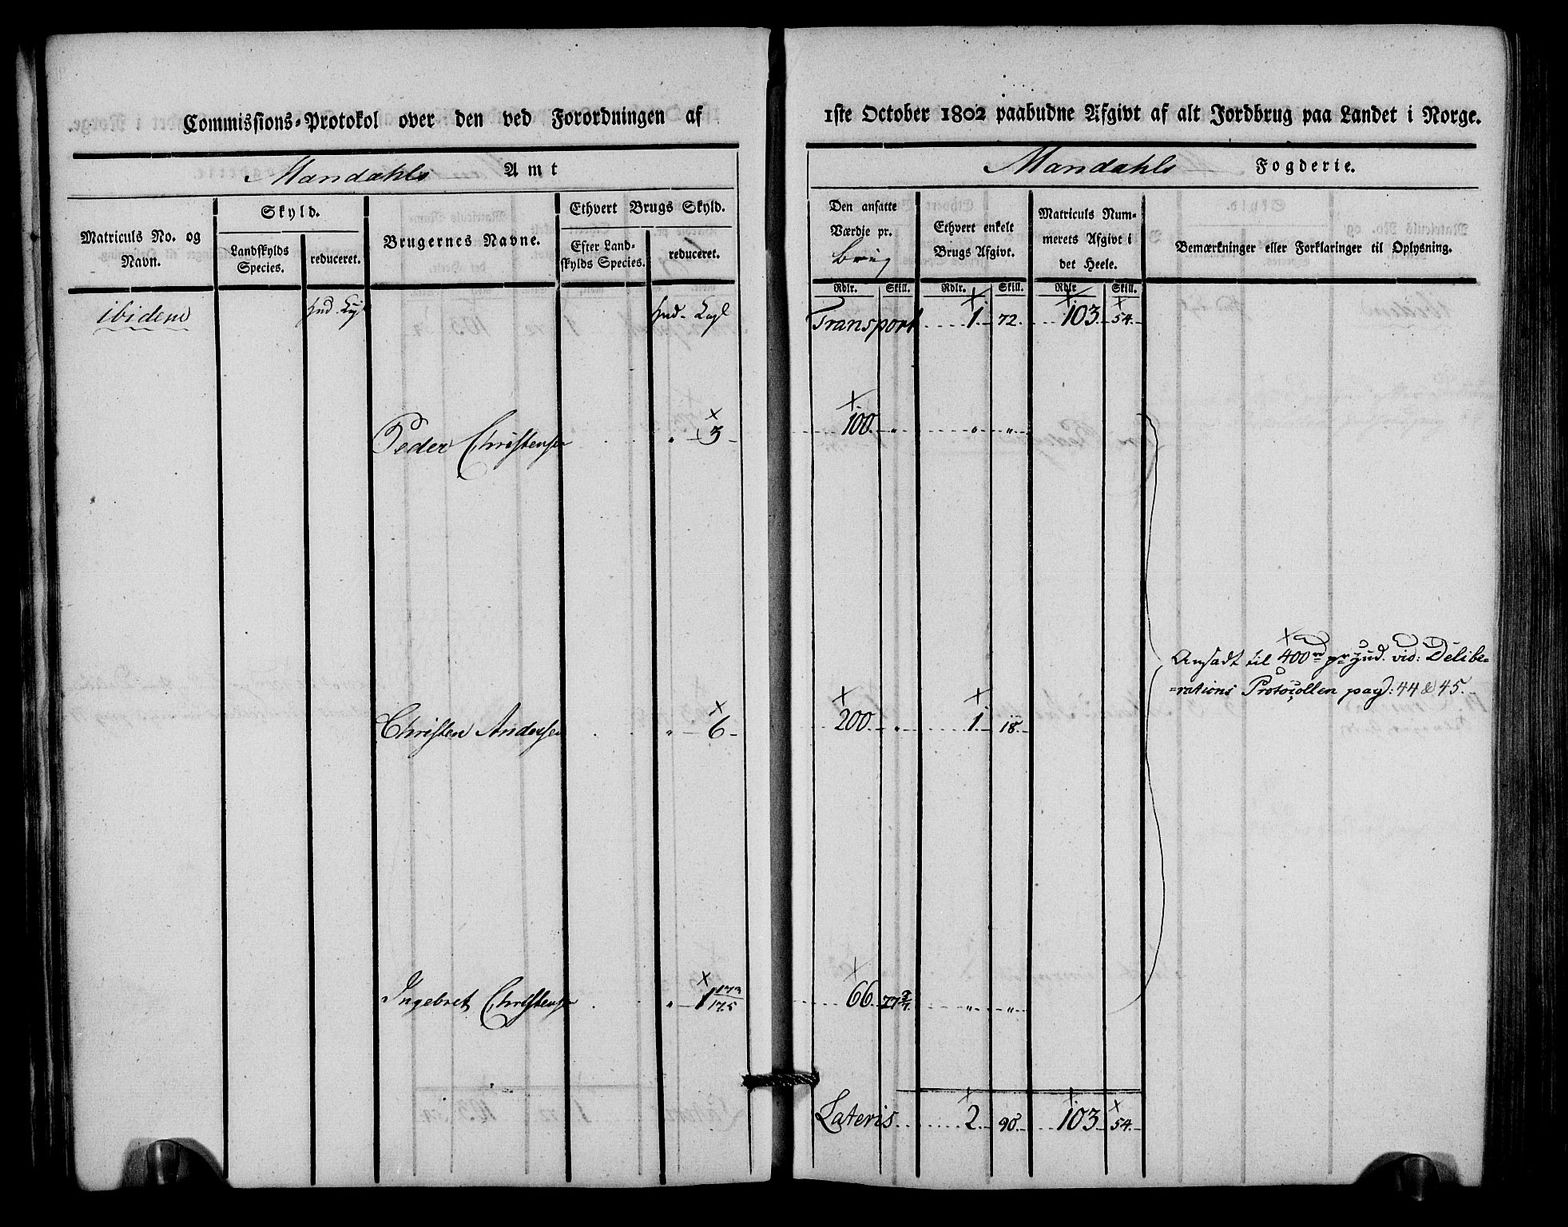 Commissions-Protokol over den ved Forordningen af 1ste October 1802 paabudne Afgivt af alt Jordbrug paa Landet i Norge.
Mandahls Amt
Mandahls Fogderie.
Matriculs No. og Navn.
Skyld.
Landskylds Species.
reduceret.
Brugernes Navne.
Ethvert Brugs Skyld.
Efter Landskylds Species.
reduceret.
Den ansatte Værdie pr.
Ethvert enkelt Brugs Afgivt.
Matriculs Nummerets Afgivt i det Heele.
Bemærkninger eller Forklaringer til Oplysning.
Rdlr. Skill. Rdlr. Skill. Rdlr Skill.
ibidem Hud. Hud. Transport 1 72 103 54
Peder Christensen " 3 100 " " "
Ansadt til 400 rd pr Hud. vid: Delibe-
-rations Protocollen pag: 44 & 45.
Christen Andersen " 6 200 " 1 18
Ingebret Christensen " 1 173/175 66 " "
Lateris 2 90 103 54